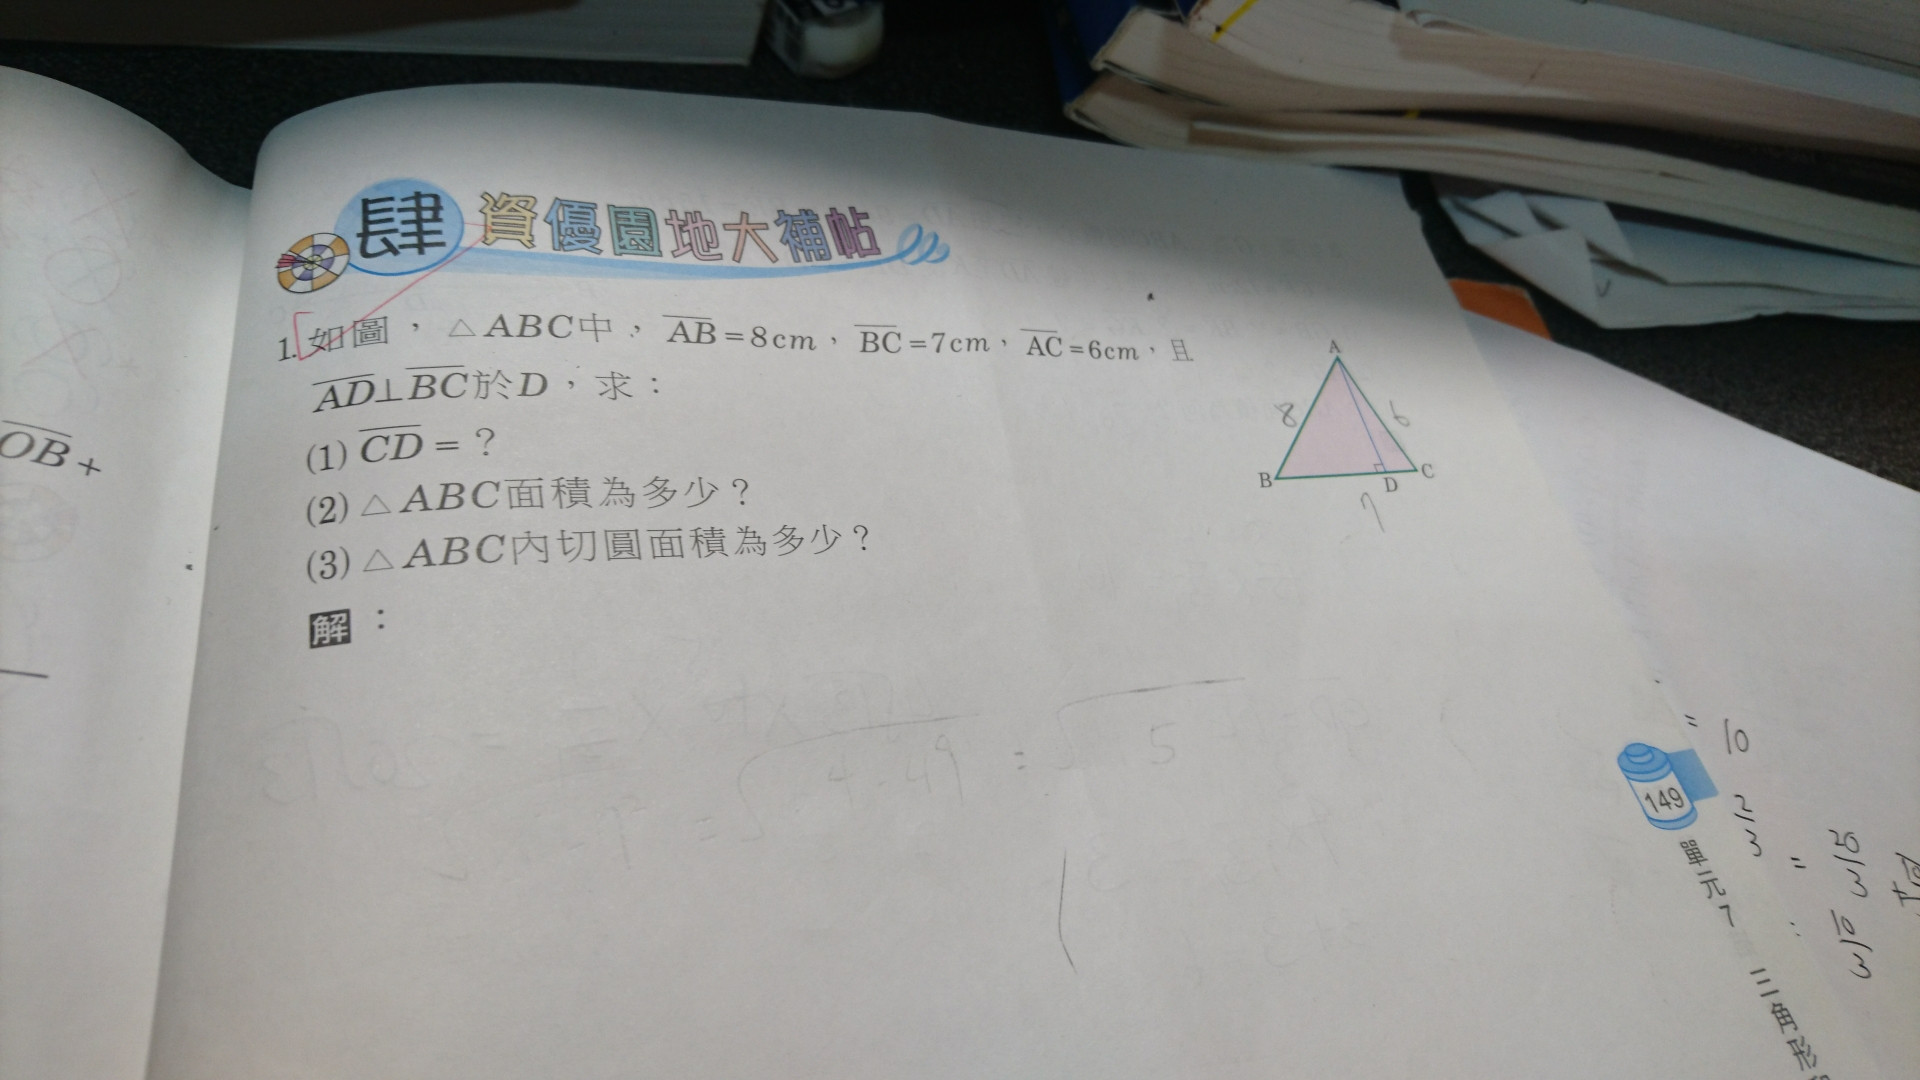 肆 資優園地大補帖
1. 如圖，△ABC中，AB=8cm，BC=7cm，AC=6cm，且
AD⊥BC於D，求：
(1) CD = ？
(2) △ABC面積為多少？
(3) △ABC內切圓面積為多少？
解：
A
8
6
B
D
C
7
OB +
149
單元7
三角形
= 10
2/3 = 20/3 : 10/3